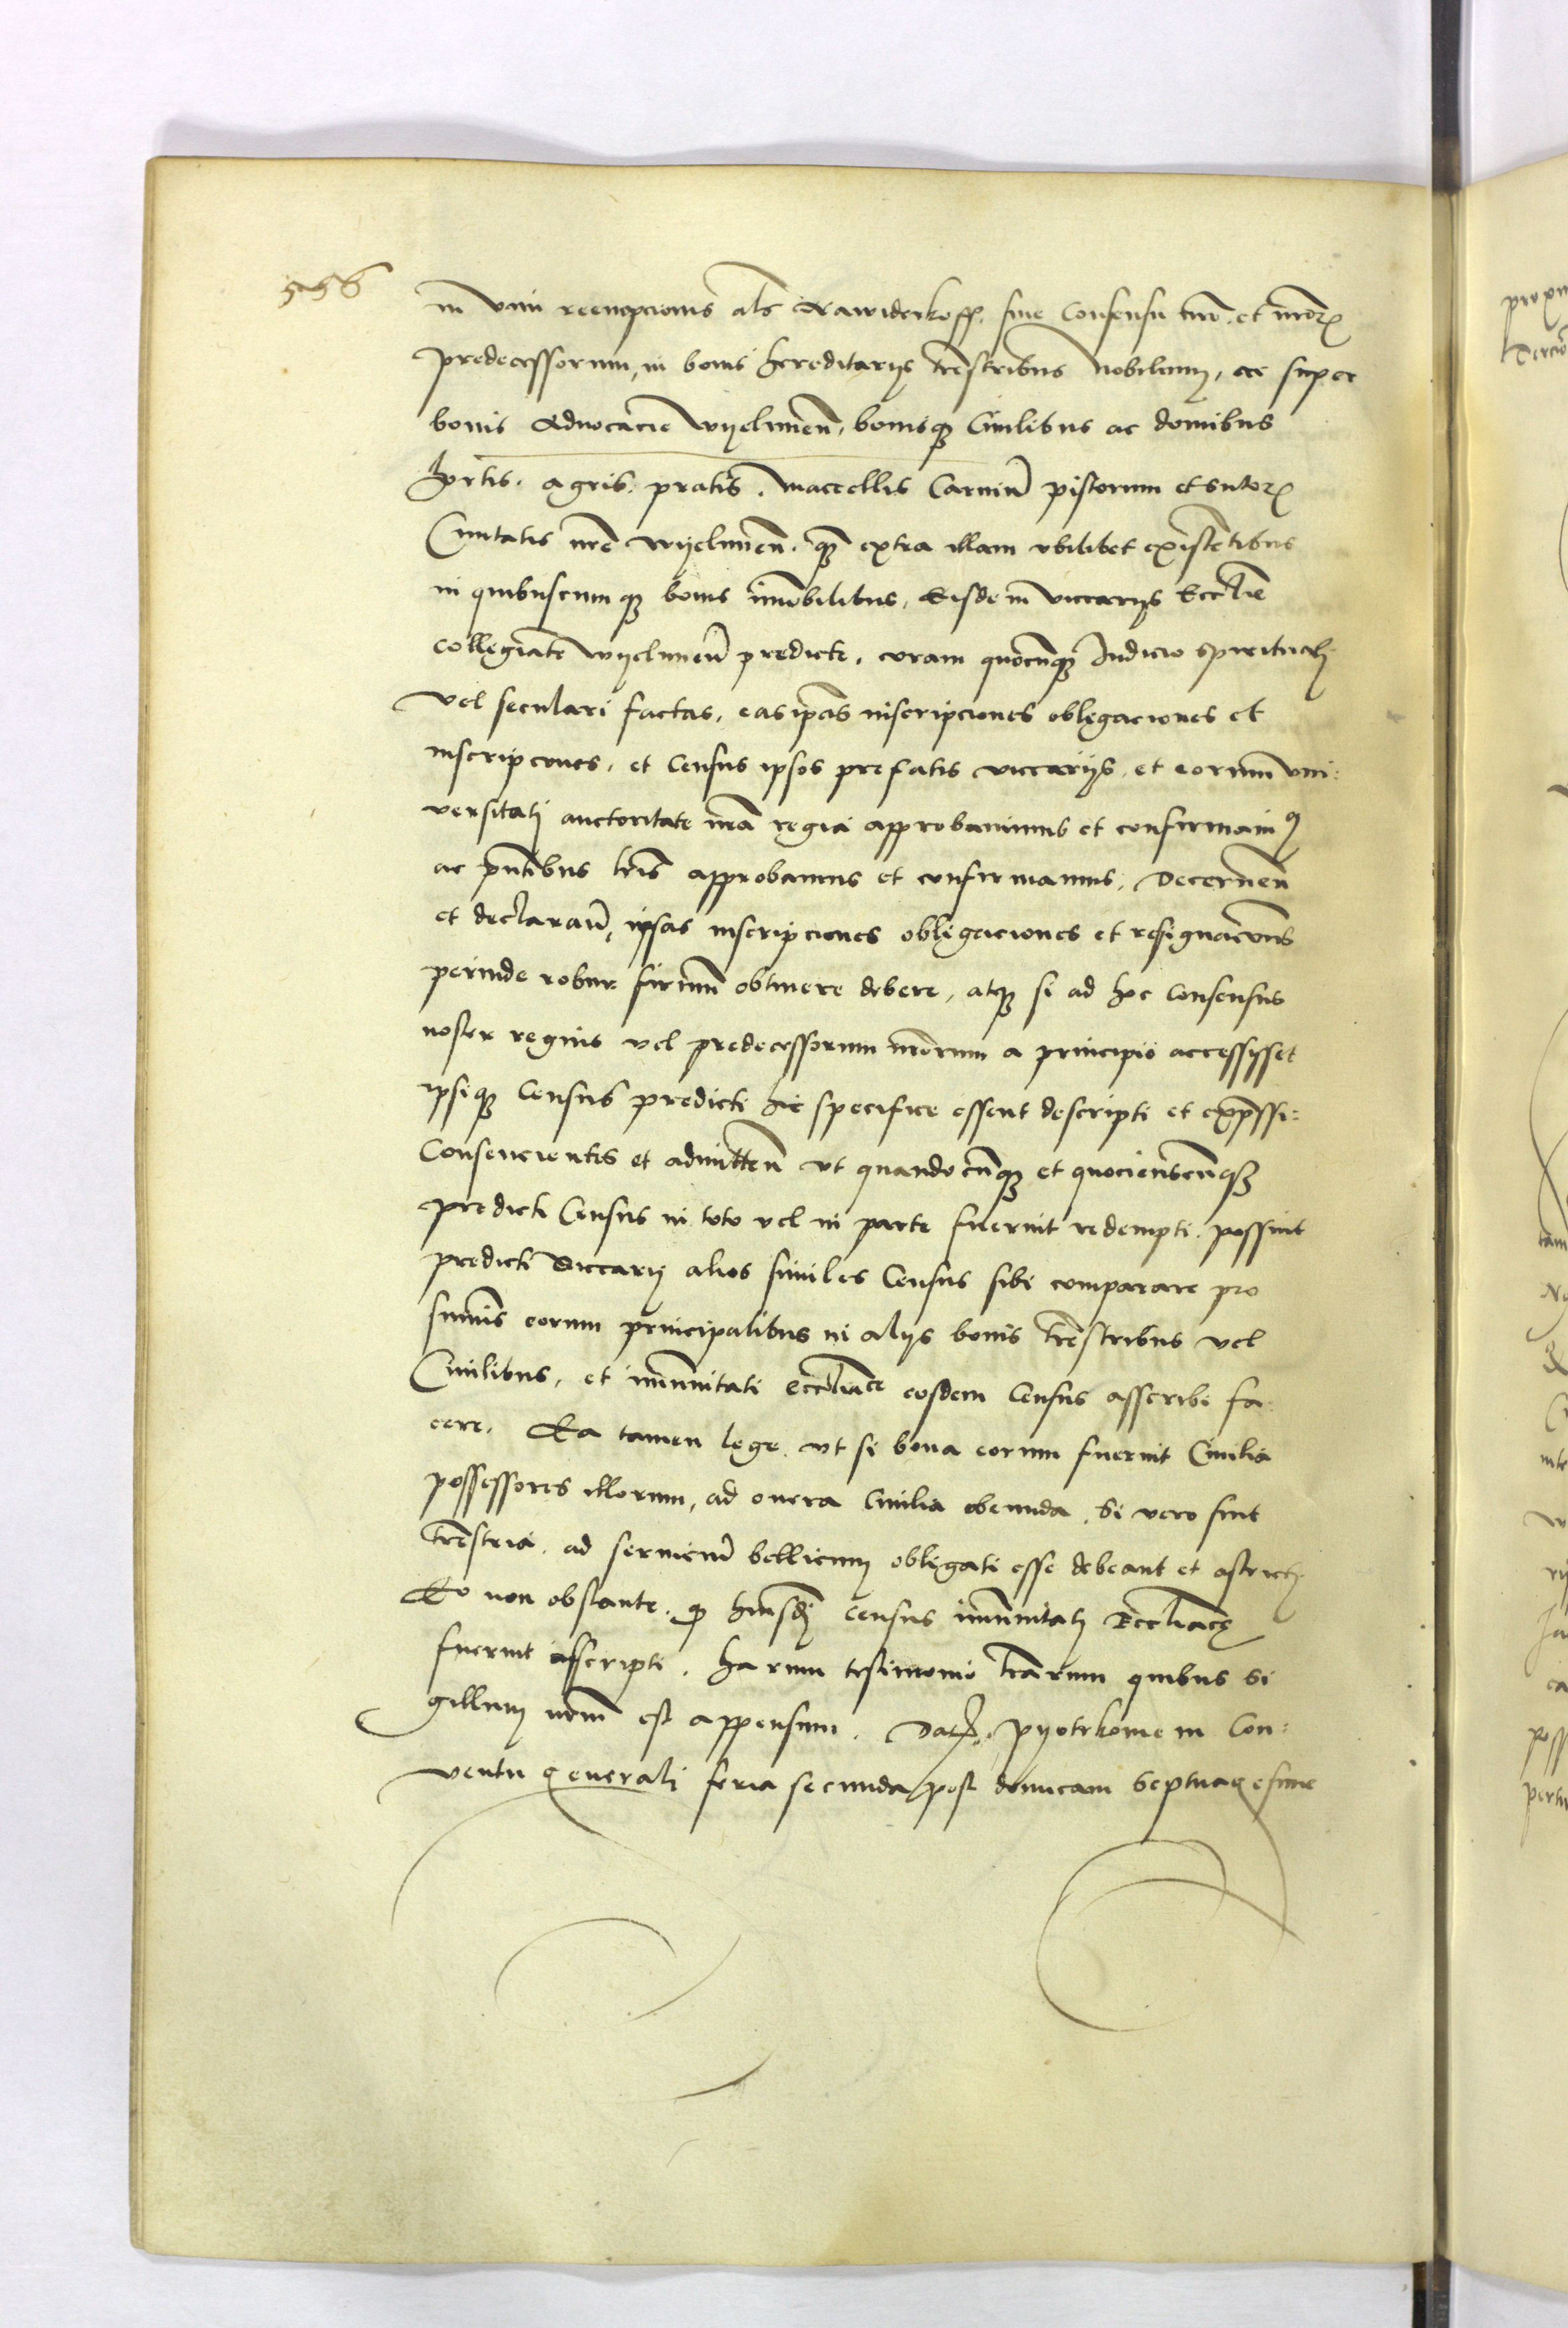 556
in vim reempcionis als Rawiderkoff. sine Consensu nro. et nroru
predecessorum, in bonis hereditarijs trestribus Nobilium, ac super
bonis Aduocacie wyelunen. bonisq Ciuilibus ac domibus
hortis. agris. pratis. maccellis Carnium pistorum et sutoru
Ciuitatis nre wyelunen. q extra illam vbilibet existetibus
in quibuscumq bonis imobilibus, Eisdem viccarijs Ecclie
collegiate wyelunen predicte. coram quocunq Iudicio spirituali
vel seculari factas, eas ipas inscripciones obligaciones et
inscripcones. et Census ipsos prefatis viccarijs, et eorum vni:
versitati auctoritate nra regia approbauimus et confirmauimus
ac pntibus lris approbamus et confirmamus. Decernen
et declaran, ipsas inscripciones obligaciones et resignacones
perinde robur firmum obtinere debere, atq si ad hoc Consensus
noster regius vel predecessorum nrorum a principio accessysset
ipsiq Census predicti hic specifice essent descripti et expssi:
Consencientes et admitten vt quandocunq et quocienscunq
predicti Census in toto vel in parte fuerint redempti. possint
predicti viccarij alios similes Census sibi comparare pro
sumis eorum principalibus in alijs bonis trestribus vel
Ciuilibus, et imunitati eccliace eosdem Census asscribi fa
cere. Ea tamen lege. vt si bona eorum fuerint Ciuilia
possessores illorum, ad onera Ciuilia obeunda. Si vero sint
trestria. ad seruicium bellicum obligati esse debeant et astricti
Eo non obstante. q huiusdi census imunitati Eccliace
fuerint asscripti. harum testimonio lrarum quibus Si
gillum nrum est appensum. Dat. pyotrkouie in Con:
uentu generali feria secunda post dominicam Septuagesime